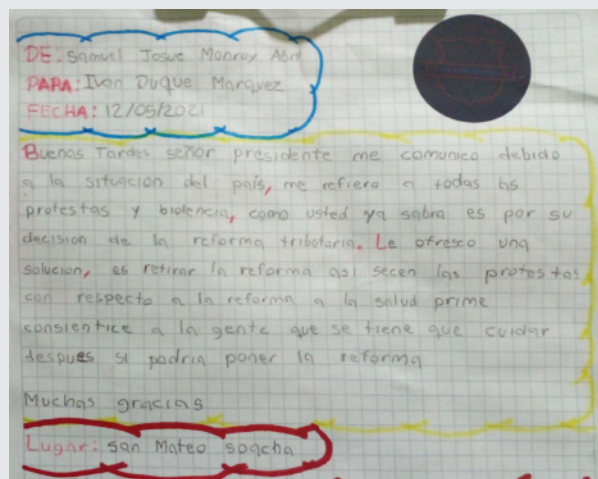 DE: Samuel Josue Monroy Abril
PARA: Ivan Duque Marquez
FECHA: 12/05/2021
Buenas Tardes señor presidente me comunico debido
a la situacion del país, me refiero a todas las
protestas y biolencia, como usted ya sabra es por su
decision de la reforma tributaria. Le ofresco una
solucion, es retirar la reforma asi secen las protestas
con respecto a la reforma a la salud prime
consientice a la gente que se tiene que cuidar
despues si podria poner la reforma
Muchas gracias
Lugar: san Mateo soacha